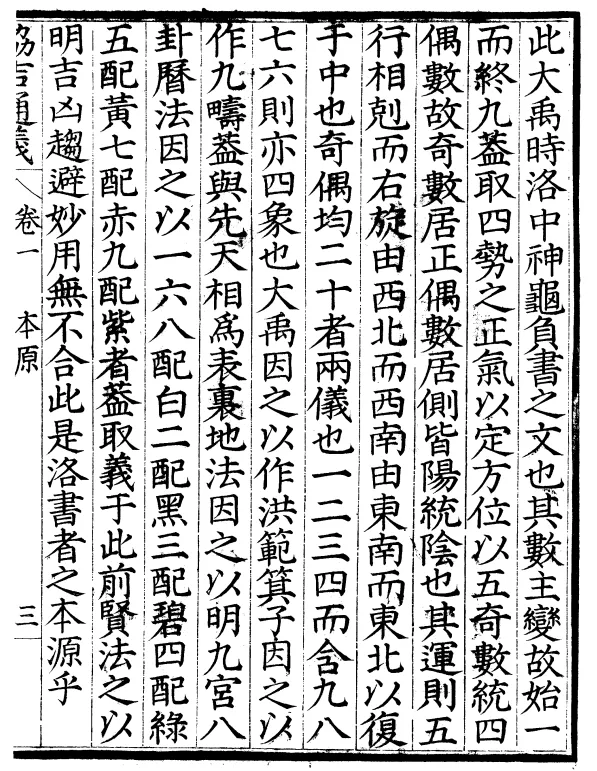 此大禹時洛中神龜負書之文也其數主變故始一
而終九蓋取四勢之正氣以定方位以五奇數統四
偶數故奇數居正偶數居側皆陽統陰也其運則五
行相剋而右旋由西北而西南由東南而東北以復
于中也奇偶均二十者兩儀也一二三四而含九八
七六則亦四象也大禹因之以作洪範箕子因之以
作九疇蓋與先天相為表裏地法因之以明九宮八
卦曆法因之以一六八配白二配黑三配碧四配綠
五配黃七配赤九配紫者蓋取義于此前賢法之以
明吉凶趨避妙用無不合此是洛書者之本源乎
協吉通義 卷一 本原 三